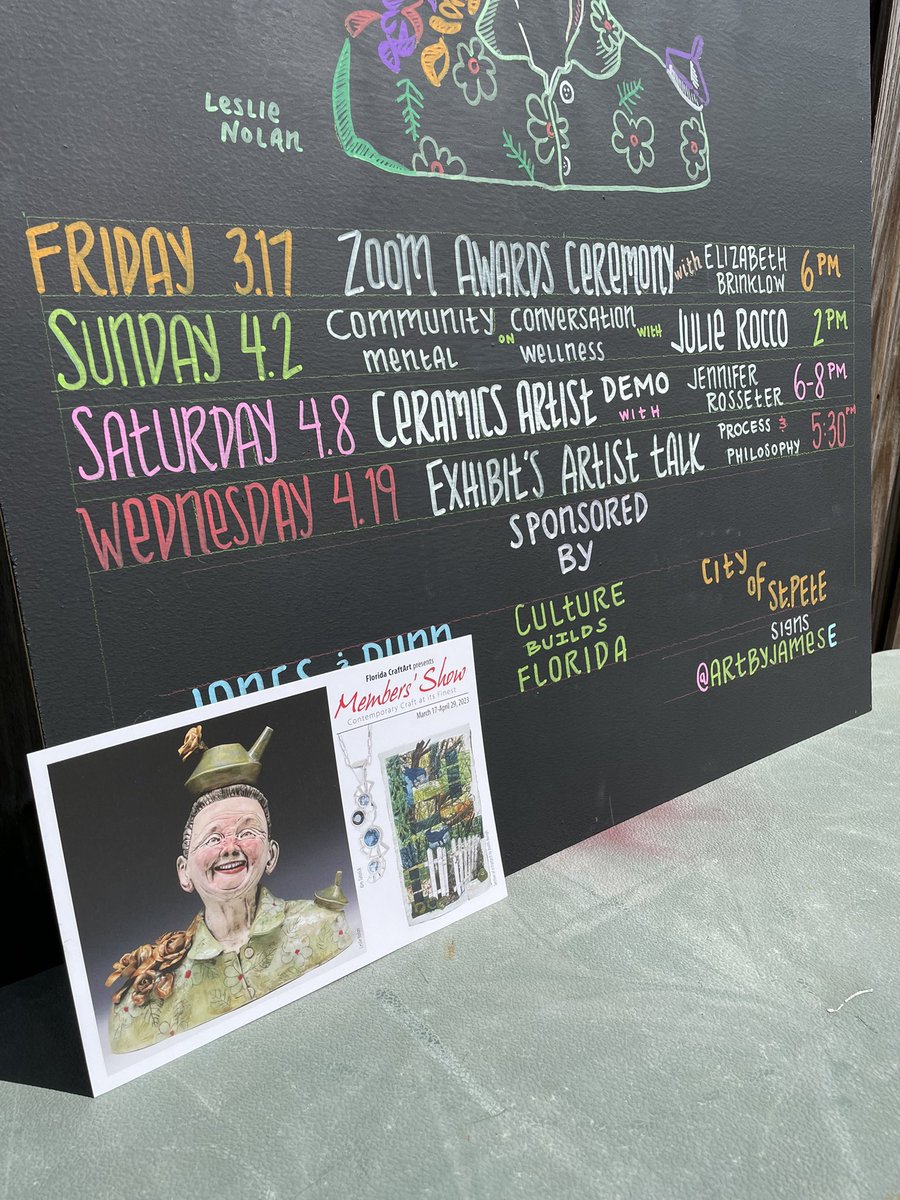 Leslie
Nolan
FRIDAY 3.17 ZOOM AWARDS CEREMONY with ELIZABETH BRINKLOW 6 PM
SUNDAY 4.2 COMMUNITY CONVERSATION ON MENTAL WELLNESS WITH JULIE ROCCO 2PM
SATURDAY 4.8 CERAMICS ARTIST DEMO WITH JENNIFER ROSSETER 6-8 PM
WEDNESDAY 4.19 EXHIBIT'S ARTIST TALK PROCESS & PHILOSOPHY 5:30 PM
SPONSORED
BY
JONES & DUNN
CULTURE
BUILDS
FLORIDA
CITY
OF
ST.PETE
SIGNS
@ARTBYJAMESE
Florida CraftArt presents
Members' Show
Contemporary Craft at its Finest
March 17-April 29, 2023